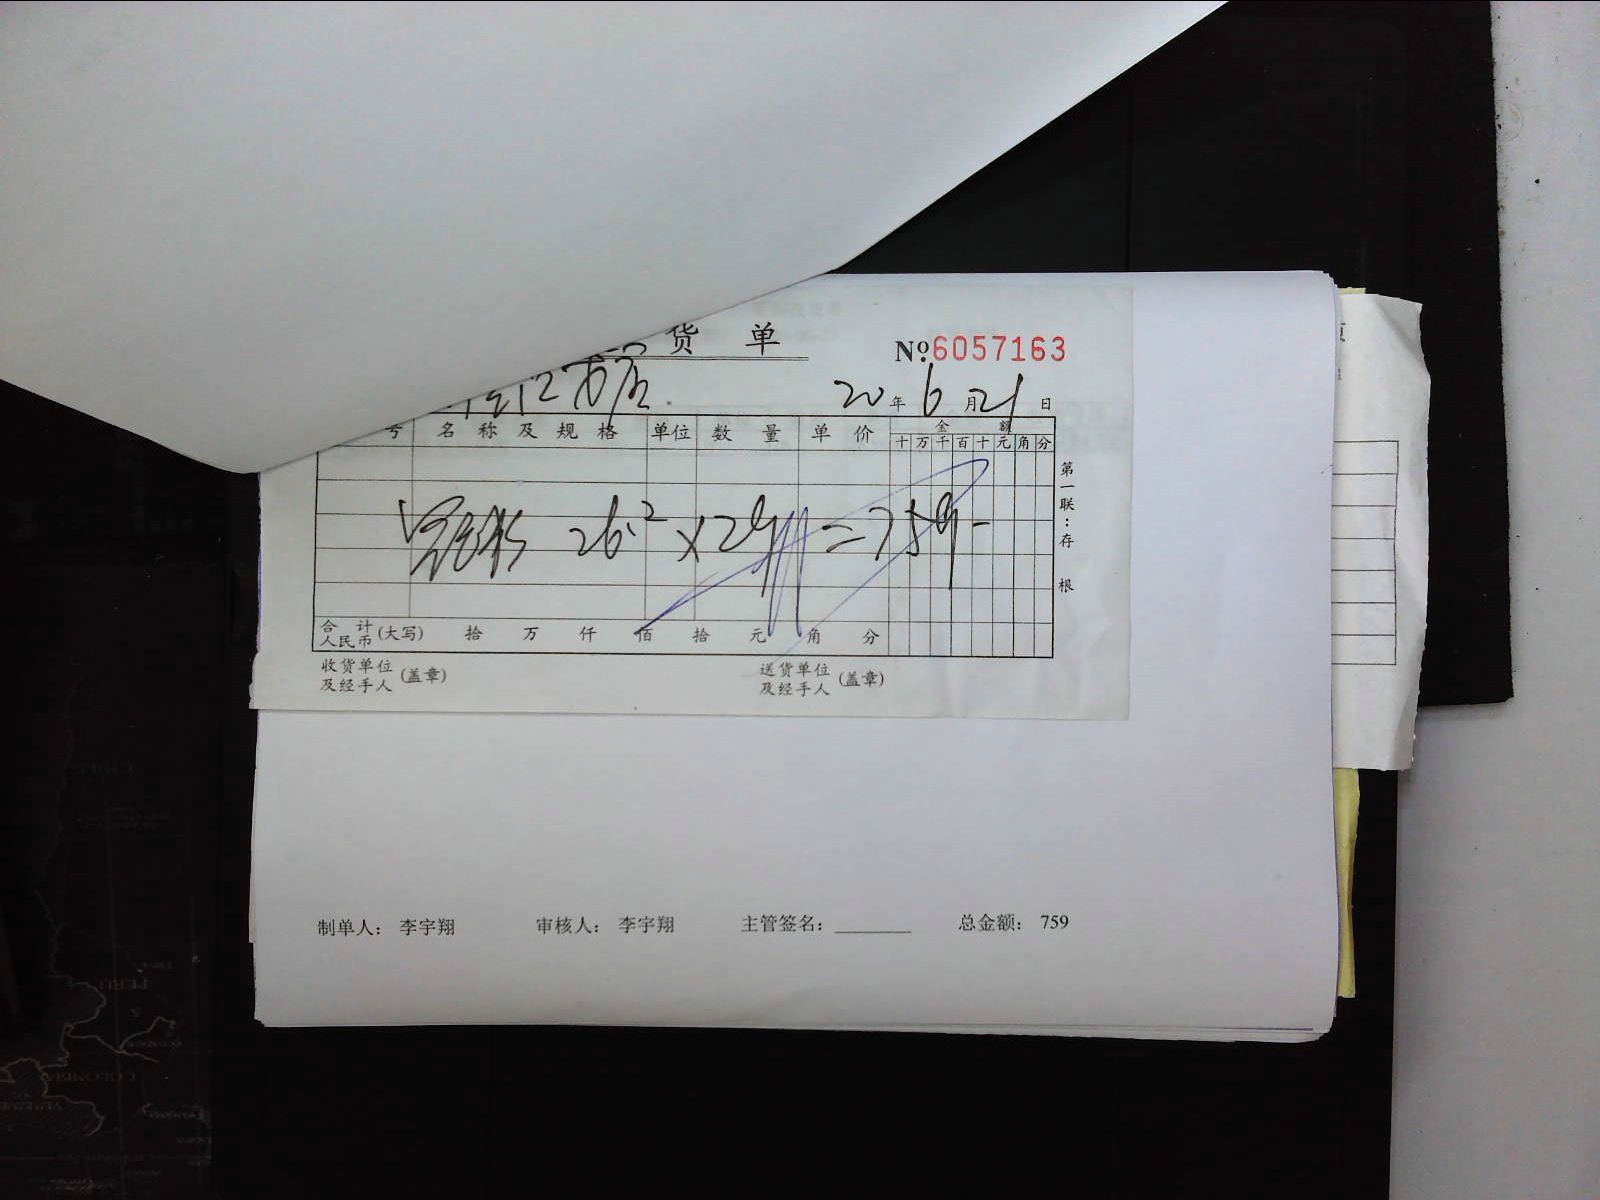 货 单
№6057163
20 年 6 月 21 日
号 名 称 及 规 格 单位 数 量 单 价 金 额
十 万 千 百 十 元 角 分
26.² × 29 = 759-
第一联：存根
合 计 人民币 (大写) 拾 万 仟 佰 拾 元 角 分
收货单位及经手人 (盖章) 送货单位及经手人 (盖章)
制单人： 李宇翔 审核人： 李宇翔 主管签名： 总金额： 759